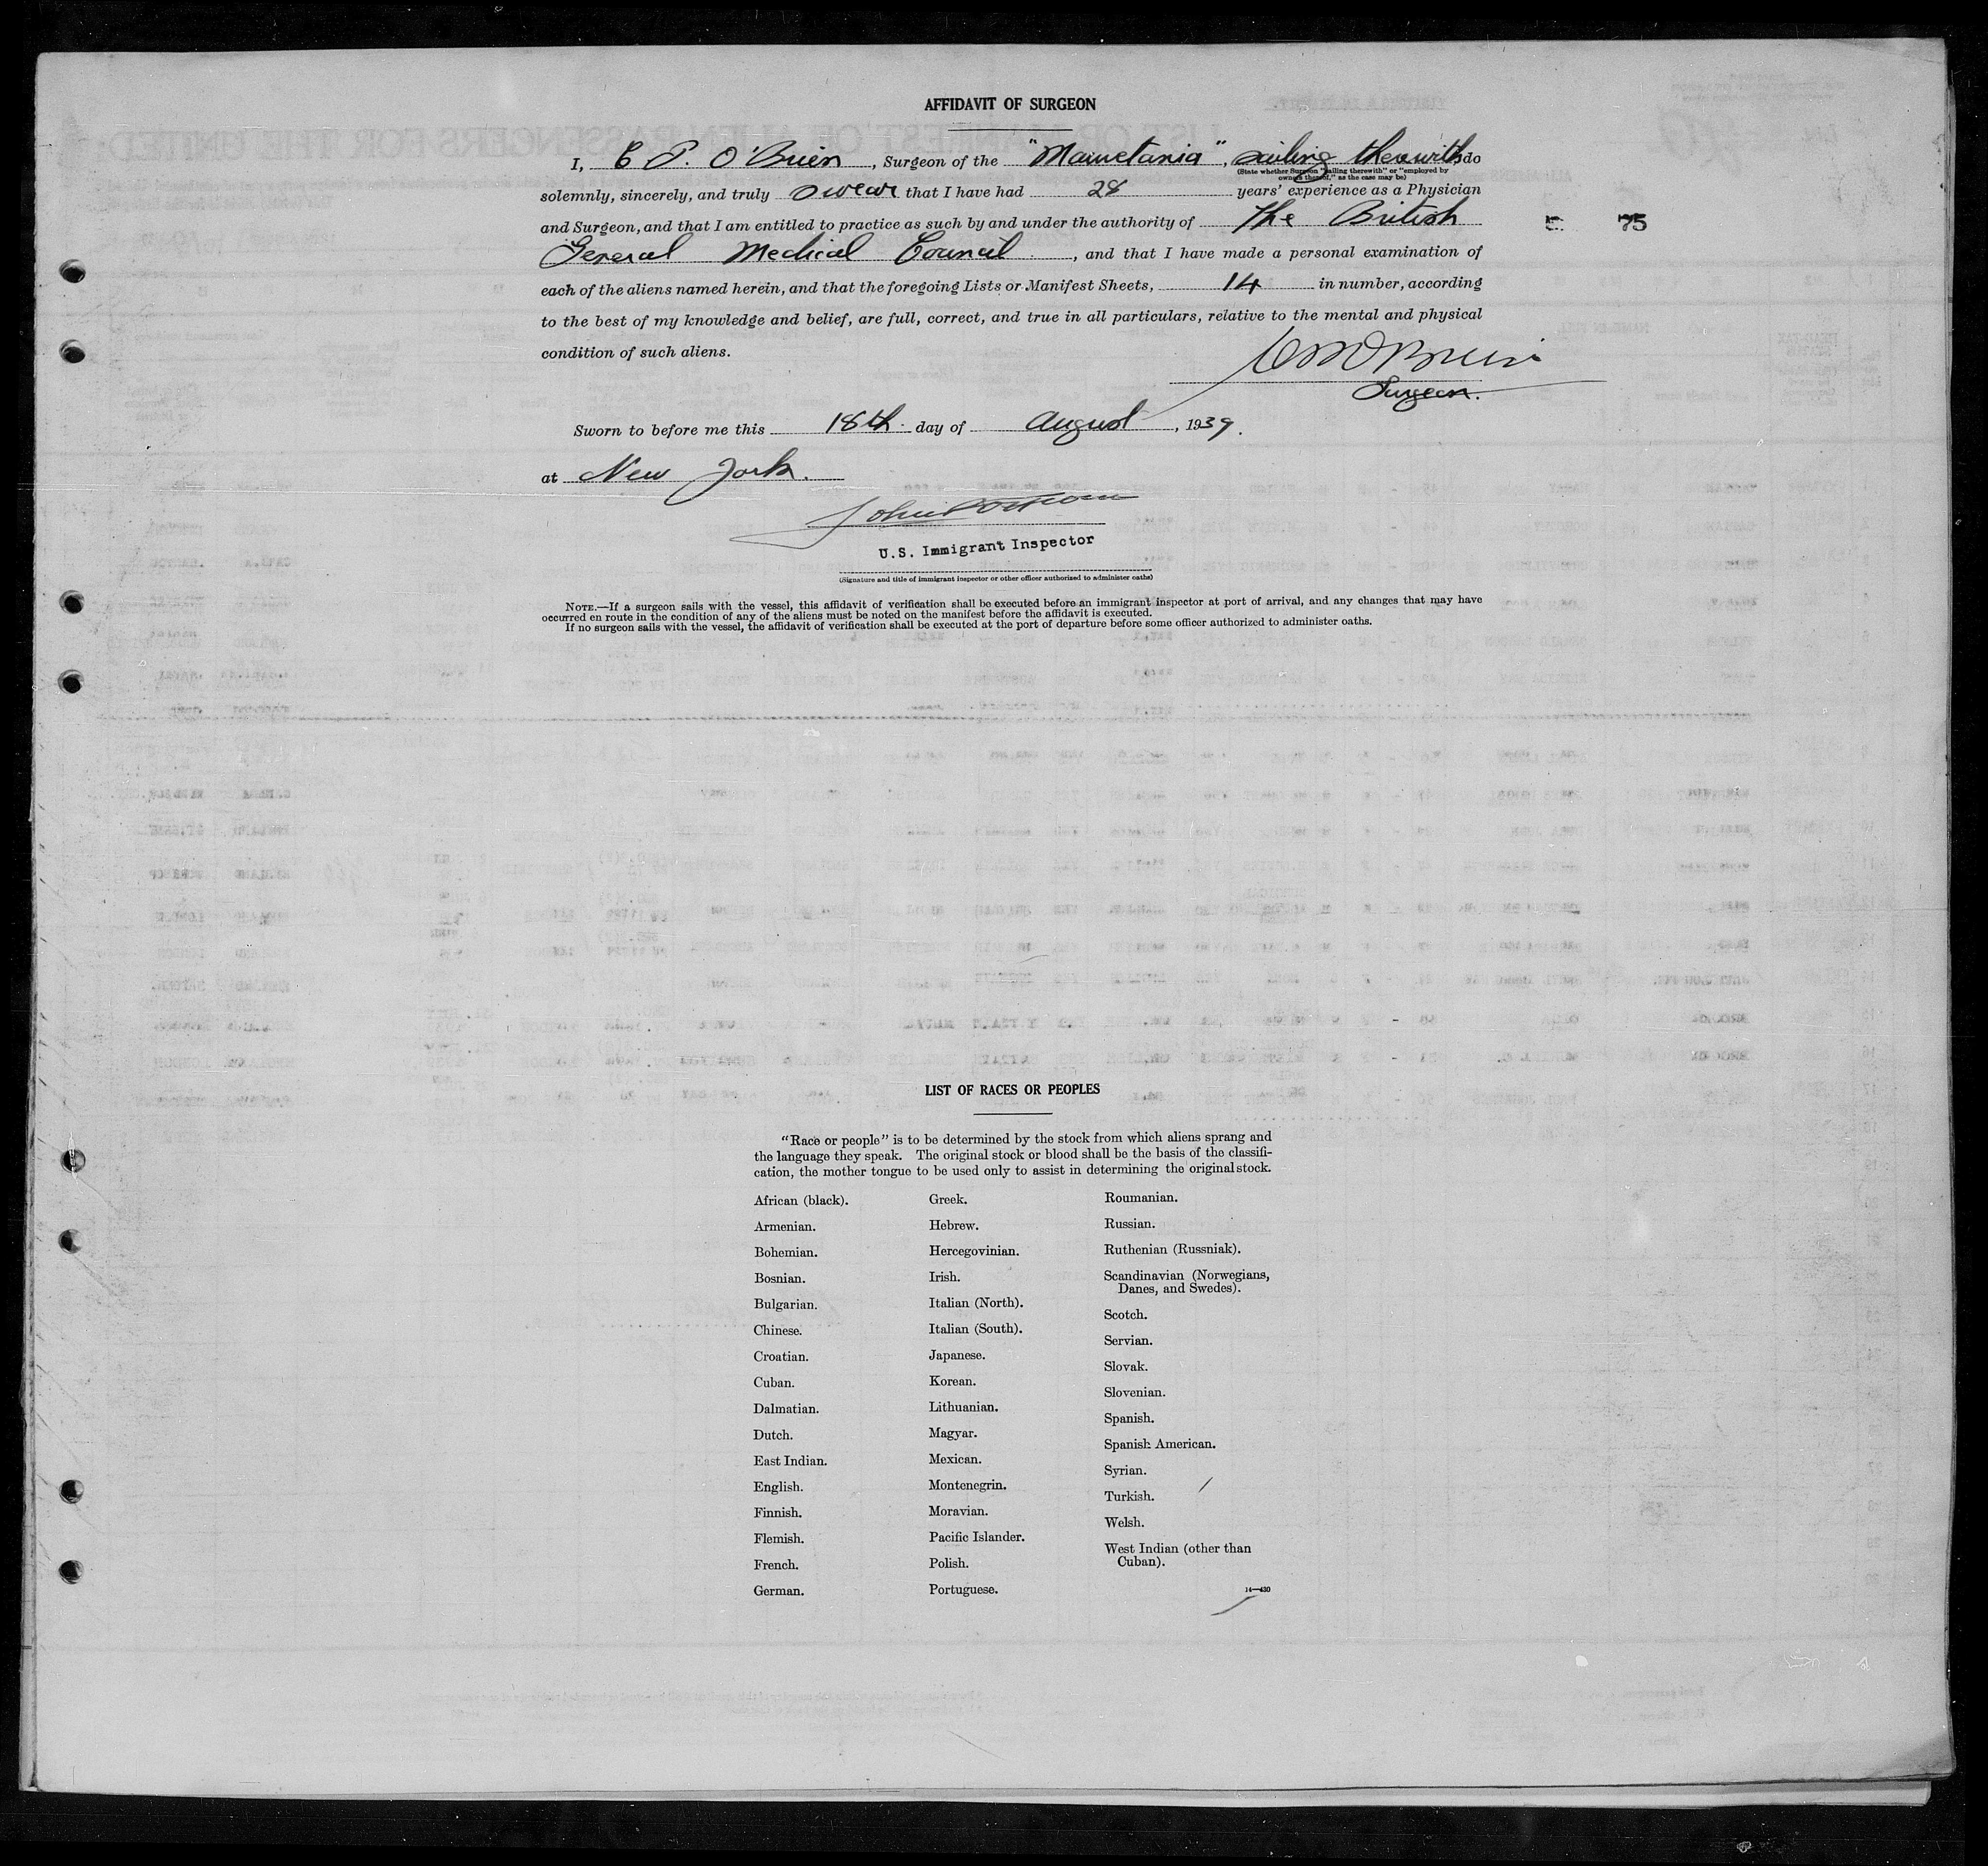 AFFIDAVIT OF SURGEON
I, C P. O'Brien, Surgeon of the "Mauretania", sailing therewith do
(State whether Surgeon "sailing therewith" or "employed by
owners thereof," as the case may be)
solemnly, sincerely, and truly swear that I have had 28 years' experience as a Physician
and Surgeon, and that I am entitled to practice as such by and under the authority of The British
75
General Medical Council, and that I have made a personal examination of
each of the aliens named herein, and that the foregoing Lists or Manifest Sheets, 14 in number, according
to the best of my knowledge and belief, are full, correct, and true in all particulars, relative to the mental and physical
condition of such aliens.
O'Brien
Surgeon.
Sworn to before me this 18th. day of August, 1939.
at New York.
John
U.S. Immigrant Inspector
(Signature and title of immigrant inspector or other officer authorized to administer oaths)
NOTE.—If a surgeon sails with the vessel, this affidavit of verification shall be executed before an immigrant inspector at port of arrival, and any changes that may have
occurred en route in the condition of any of the aliens must be noted on the manifest before the affidavit is executed.
If no surgeon sails with the vessel, the affidavit of verification shall be executed at the port of departure before some officer authorized to administer oaths.
LIST OF RACES OR PEOPLES
"Race or people" is to be determined by the stock from which aliens sprang and
the language they speak. The original stock or blood shall be the basis of the classifi-
cation, the mother tongue to be used only to assist in determining the original stock.
African (black).
Armenian.
Bohemian.
Bosnian.
Bulgarian.
Chinese.
Croatian.
Cuban.
Dalmatian.
Dutch.
East Indian.
English.
Finnish.
Flemish.
French.
German.
Greek.
Hebrew.
Hercegovinian.
Irish.
Italian (North).
Italian (South).
Japanese.
Korean.
Lithuanian.
Magyar.
Mexican.
Montenegrin.
Moravian.
Pacific Islander.
Polish.
Portuguese.
Roumanian.
Russian.
Ruthenian (Russniak).
Scandinavian (Norwegians,
Danes, and Swedes).
Scotch.
Servian.
Slovak.
Slovenian.
Spanish.
Spanish American.
Syrian.
Turkish.
Welsh.
West Indian (other than
Cuban).
14—430